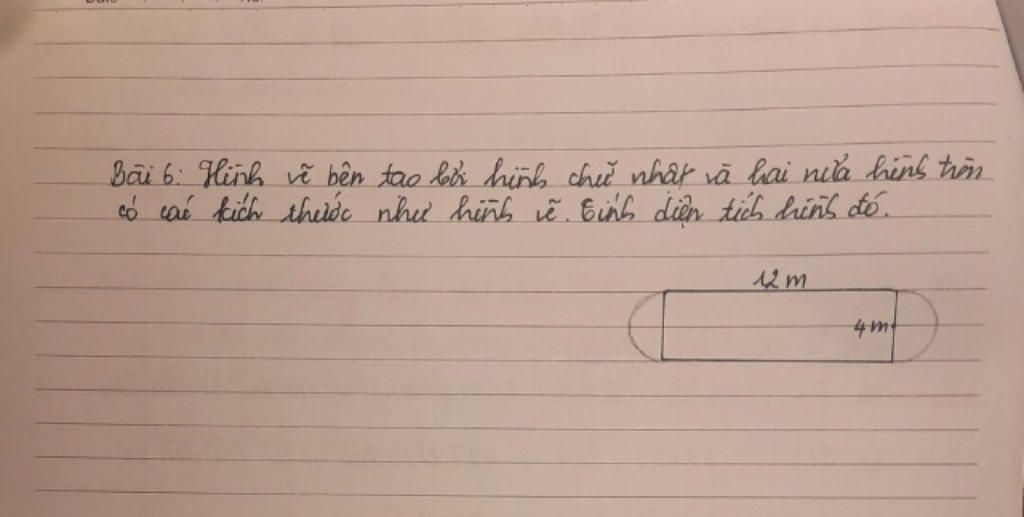 Bài 6: Hình vẽ bên tạo bởi hình chữ nhật và hai nửa hình tròn
có các kích thước như hình vẽ. Tính diện tích hình đó.
12 m
4 m